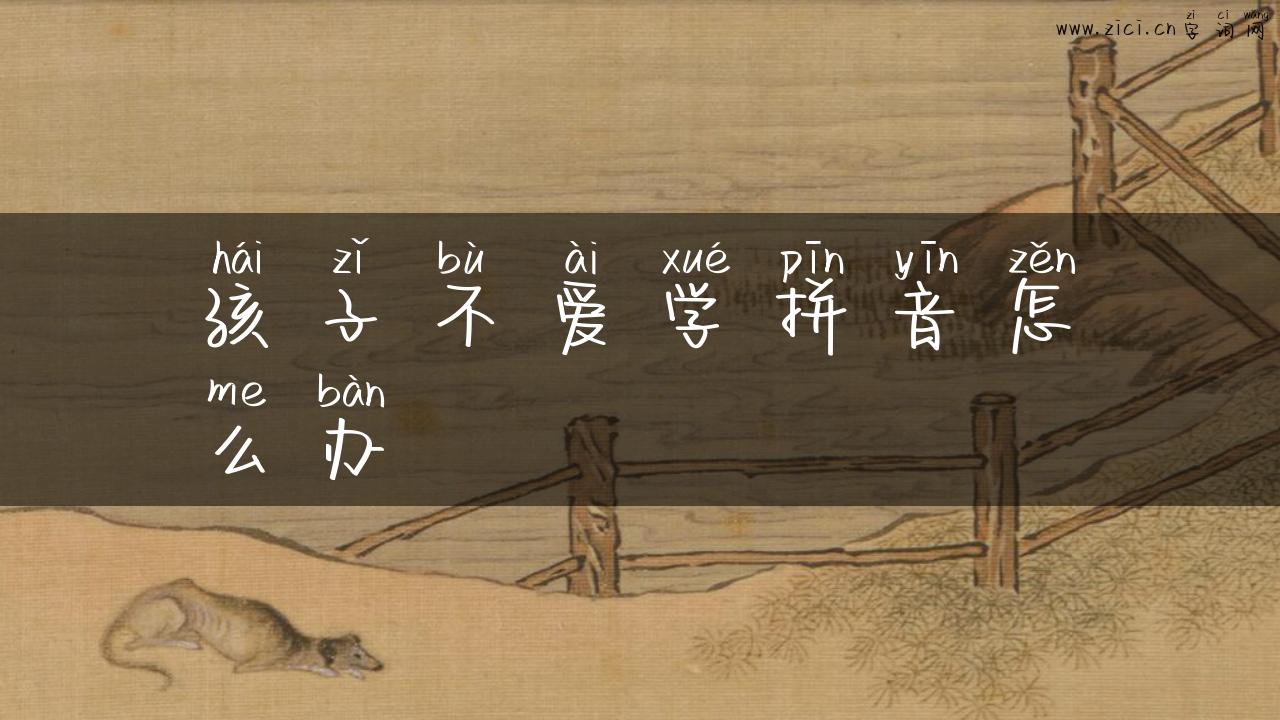 zi ci wang
www.zici.cn 字词网
hái zǐ bù ài xué pīn yīn zěn
孩子不爱学拼音怎
me bàn
么办